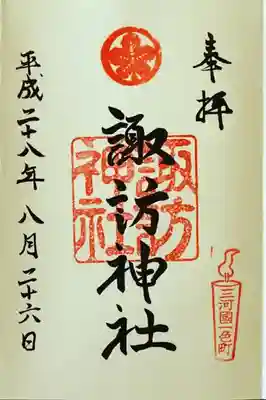 奉拝
諏訪神社
諏訪
神社
三河國一色町
平成二十八年八月二十六日